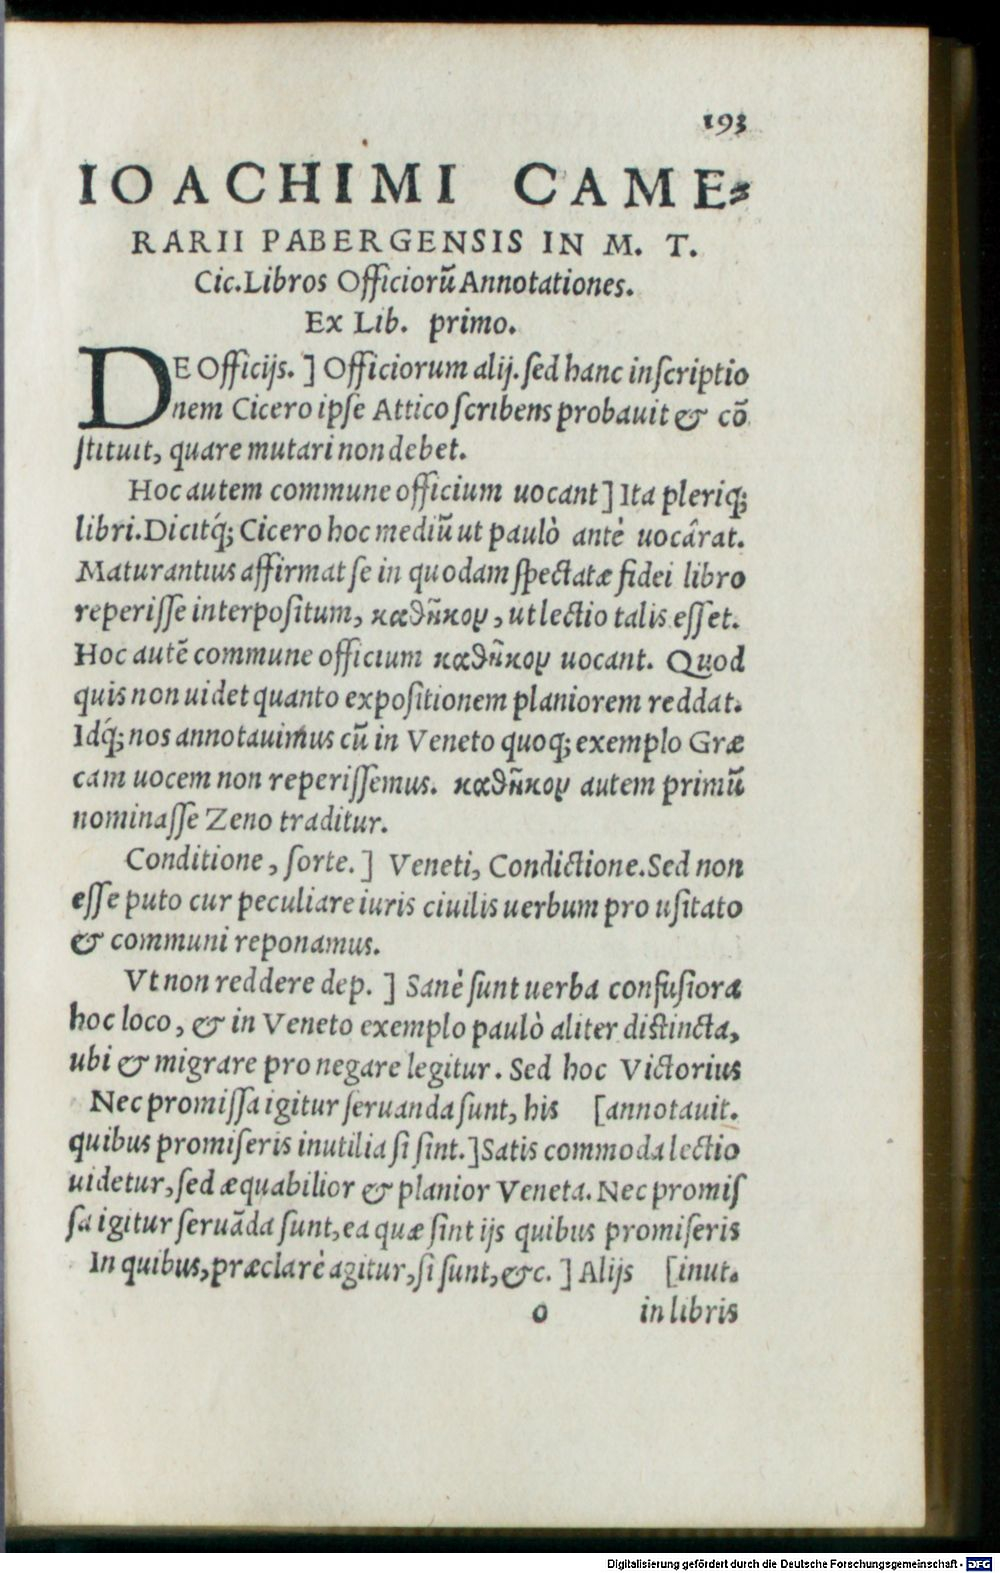 193
IOACHIMI CAME⸗
RARII PABERGENSIS IN M. T.
Cic. Libros Officiorũ Annotationes.
Ex Lib. primo.
DE Officijs. ] Officiorum alij. sed hanc inscriptio
nem Cicero ipse Attico scribens probauit & cõ
stituit, quare mutari non debet.
Hoc autem commune officium uocant] Ita pleriq;
libri. Dicitq́; Cicero hoc mediũ ut paulò antè uocârat.
Maturantius affirmat se in quodam spectatæ fidei libro
reperisse interpositum, καθῆκον, ut lectio talis esset.
Hoc autẽ commune officium καθῆκον uocant. Quod
quis non uidet quanto expositionem planiorem reddat.
Idq́; nos annotauimus cũ in Veneto quoq; exemplo Græ
cam uocem non reperissemus. καθῆκον autem primũ
nominasse Zeno traditur.
Conditione, sorte. ] Veneti, Condictione. Sed non
esse puto cur peculiare iuris ciuilis uerbum pro usitato
& communi reponamus.
Vt non reddere dep. ] Sanè sunt uerba confusiora
hoc loco, & in Veneto exemplo paulò aliter distincta,
ubi & migrare pro negare legitur. Sed hoc Victorius
Nec promissa igitur seruanda sunt, his [annotauit.
quibus promiseris inutilia si sint.] Satis commoda lectio
uidetur, sed æquabilior & planior Veneta. Nec promis
sa igitur seruãda sunt, ea quæ sint ijs quibus promiseris
In quibus, præclarè agitur, si sunt, &c. ] Alijs [inut.
o in libris
Digitalisierung gefördert durch die Deutsche Forschungsgemeinschaft - DFG